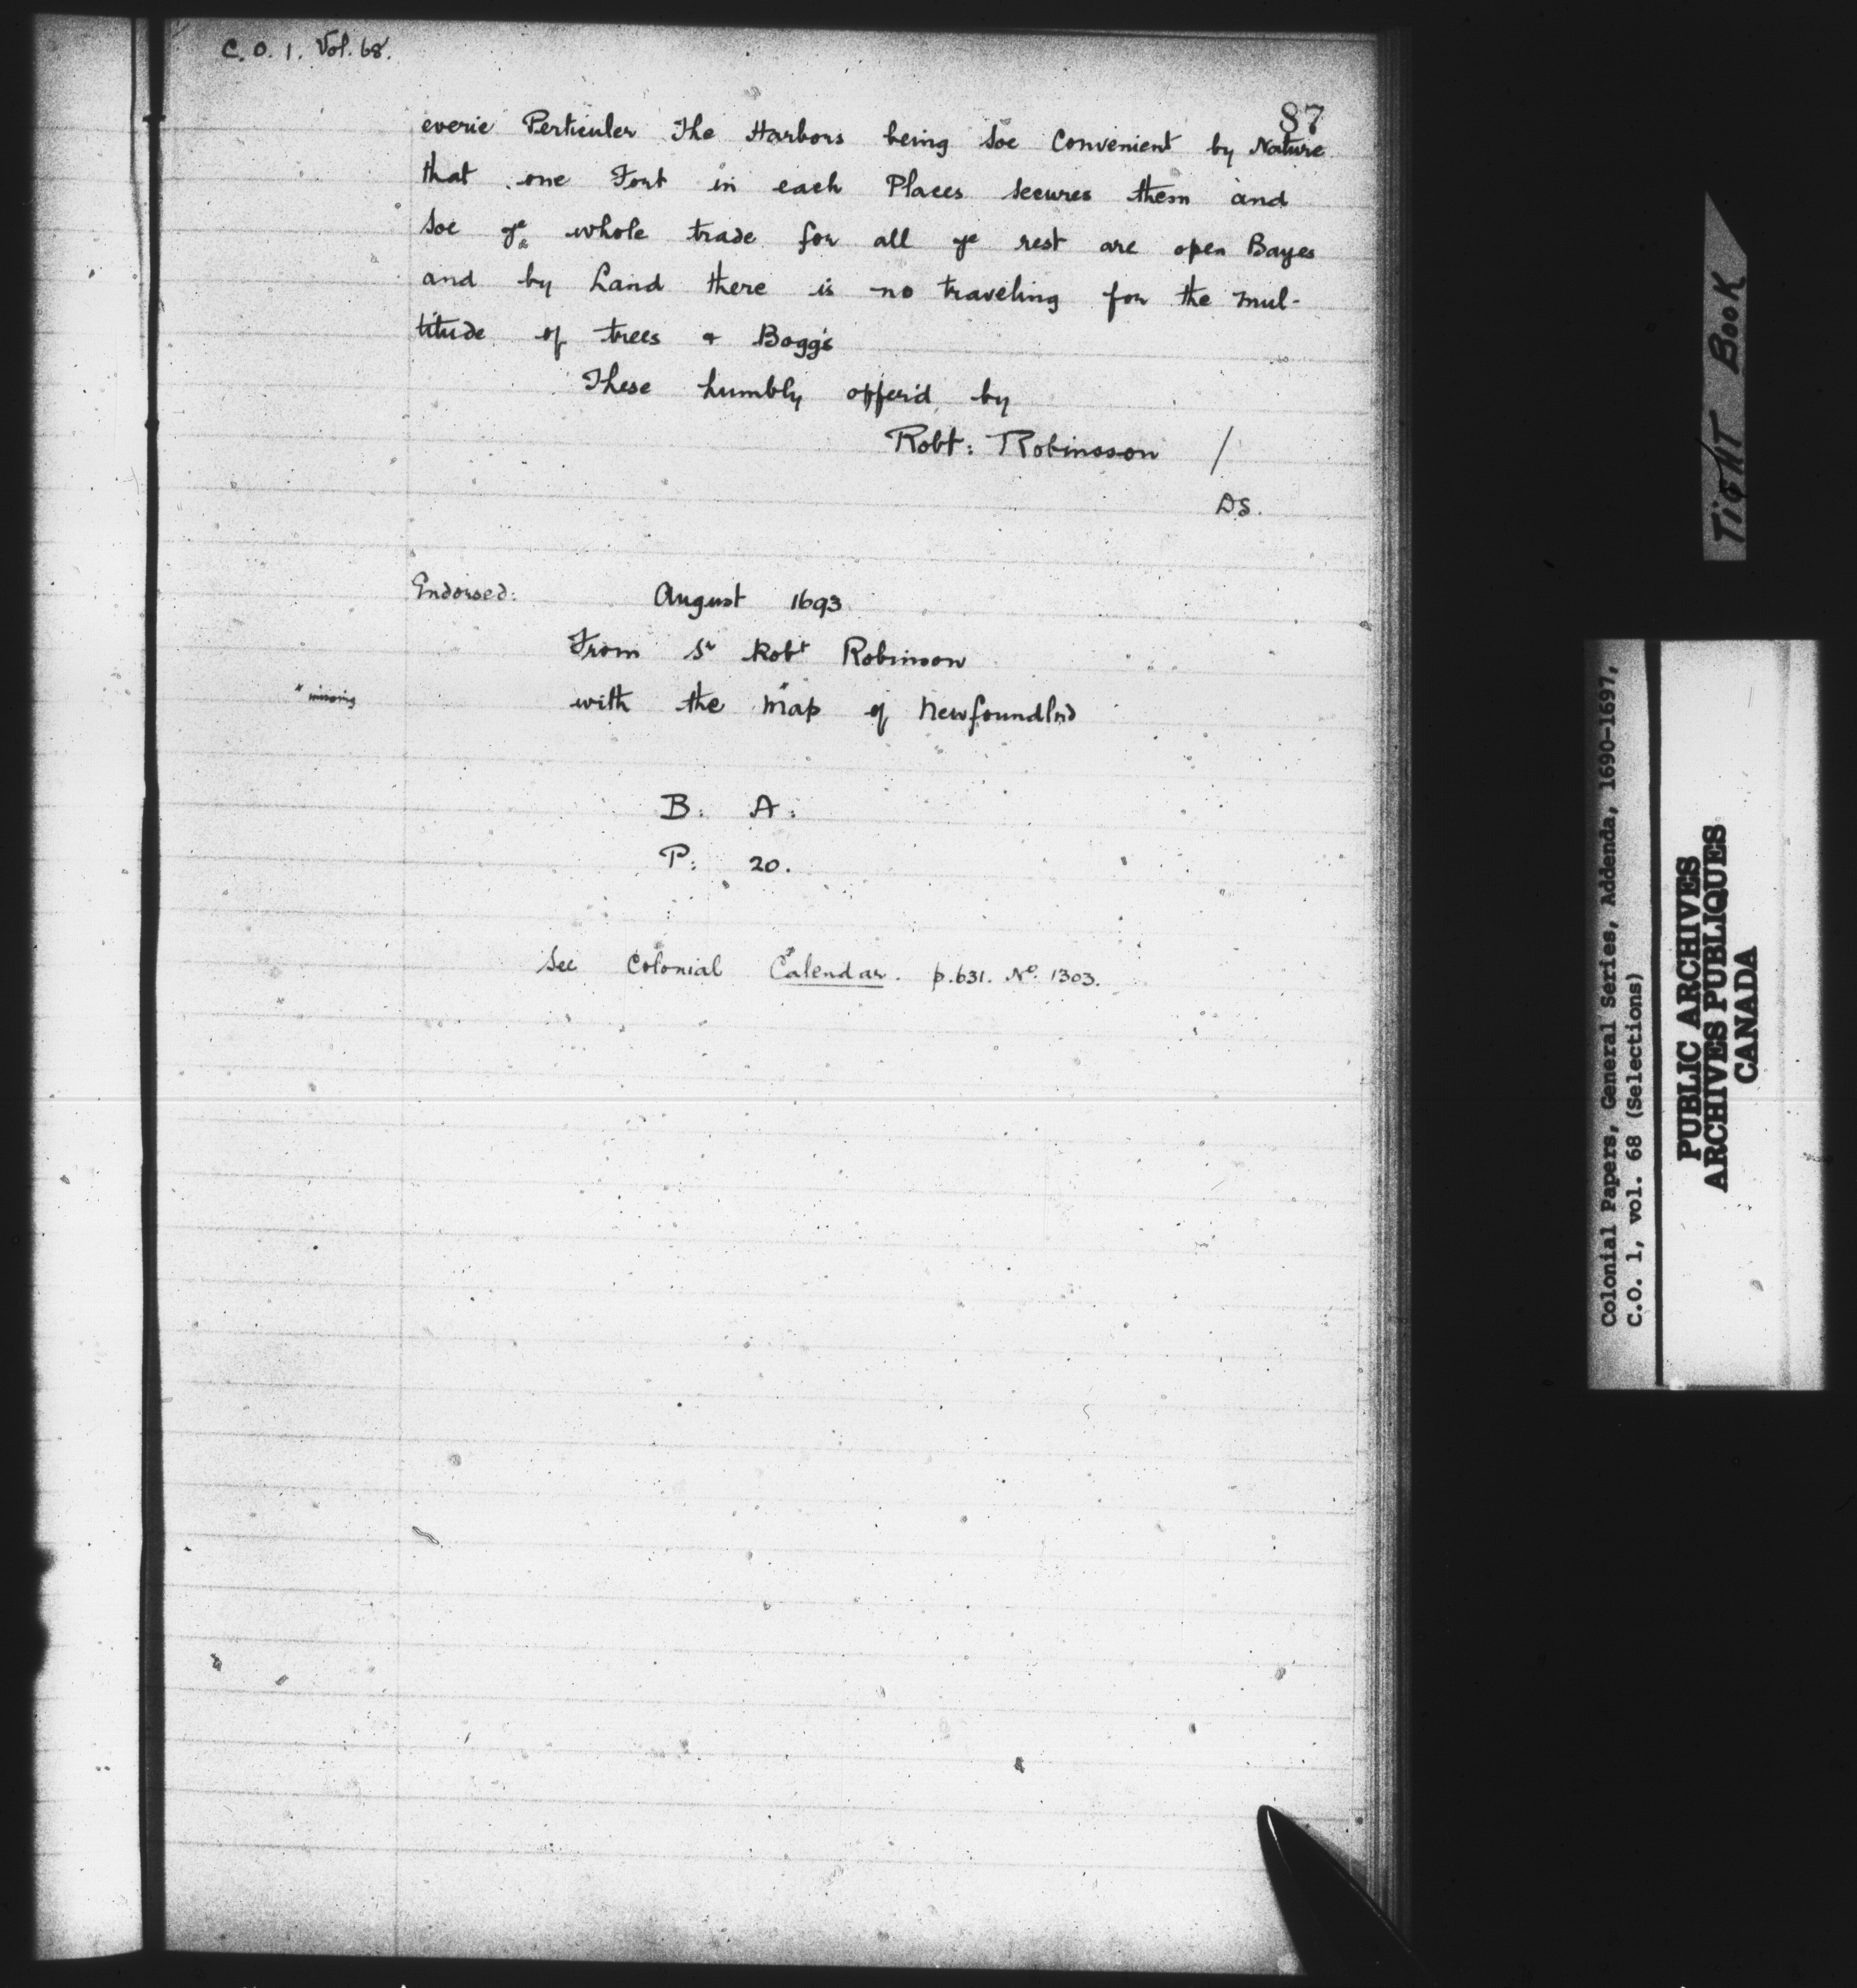 C. O. 1. Vol. 68.
87
everie Perticuler The Harbors being soe Convenient by Nature
that one Fort in each Places secures them and
soe ye whole trade for all ye rest are open Bayes
and by Land there is no traveling for the mul-
titude of trees & Boggs
These humbly offer'd by
Robt: Robinsson /
DS.
Endorsed: August 1693
From Sr Robt Robinson
" missing with the "map of Newfoundlnd
B: A:
P: 20.
See Colonial Calendar. p.631. No. 1303.
TiGHT BOOK
Colonial Papers, General Series, Addenda, 1690-1697,
C.O. 1, vol. 68 (Selections)
PUBLIC ARCHIVES
ARCHIVES PUBLIQUES
CANADA